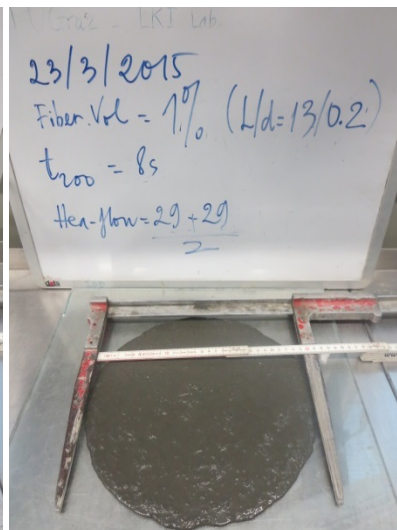 LKI Lab.
23/3/2015
Fiber.Vol = 1% (L/d=13/0.2)
t200 = 8s
Hea-flow = 29 + 29
2